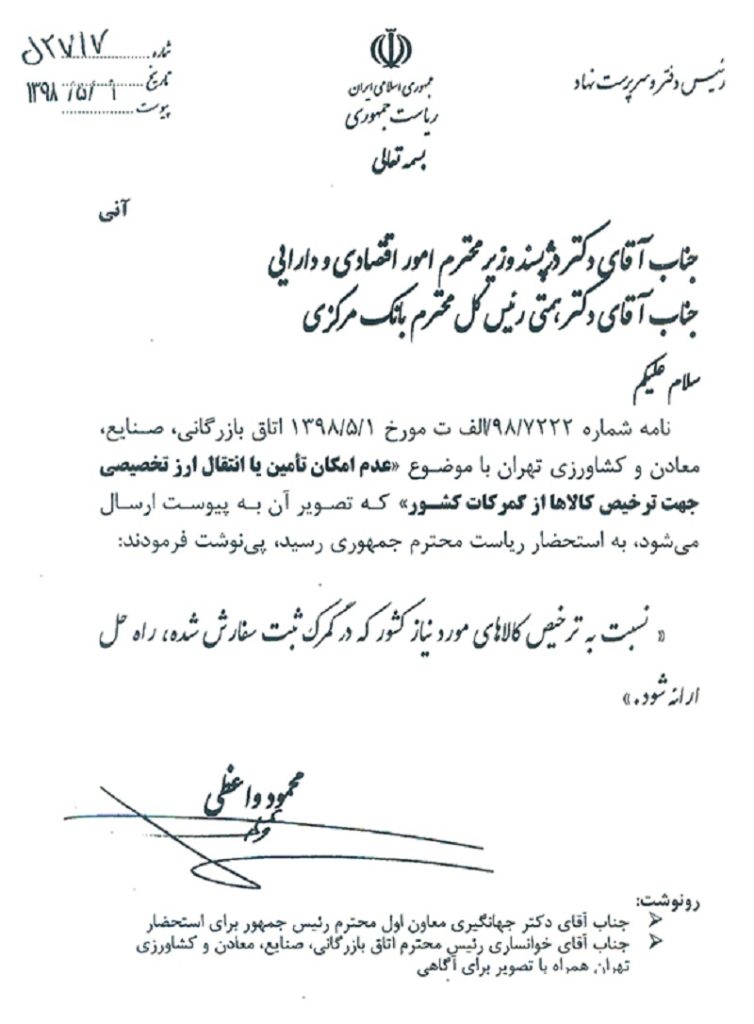 رئیس دفتر و سرپرست نهاد
جمهوری اسلامی ایران
ریاست جمهوری
بسمه تعالی
شماره
تاریخ ۱۳۹۸/۵/۹
پیوست
آنی
جناب آقای دکتر دژپسند وزیر محترم امور اقتصادی و دارایی
جناب آقای دکتر همتی رئیس کل محترم بانک مرکزی
سلام علیکم
نامه شماره ۹۸/۷۲۲۲/الف ت مورخ ۱۳۹۸/۵/۱ اتاق بازرگانی، صنایع،
معادن و کشاورزی تهران با موضوع «عدم امکان تأمین یا انتقال ارز تخصیصی
جهت ترخیص کالاها از گمرکات کشور» که تصویر آن به پیوست ارسال
می‌شود، به استحضار ریاست محترم جمهوری رسید، پی‌نوشت فرمودند:
« نسبت به ترخیص کالاهای مورد نیاز کشور که در گمرک ثبت سفارش شده، راه حل
ارائه شود.»
محمود واعظی
رونوشت:
جناب آقای دکتر جهانگیری معاون اول محترم رئیس جمهور برای استحضار
جناب آقای خوانساری رئیس محترم اتاق بازرگانی، صنایع، معادن و کشاورزی
تهران همراه با تصویر برای آگاهی